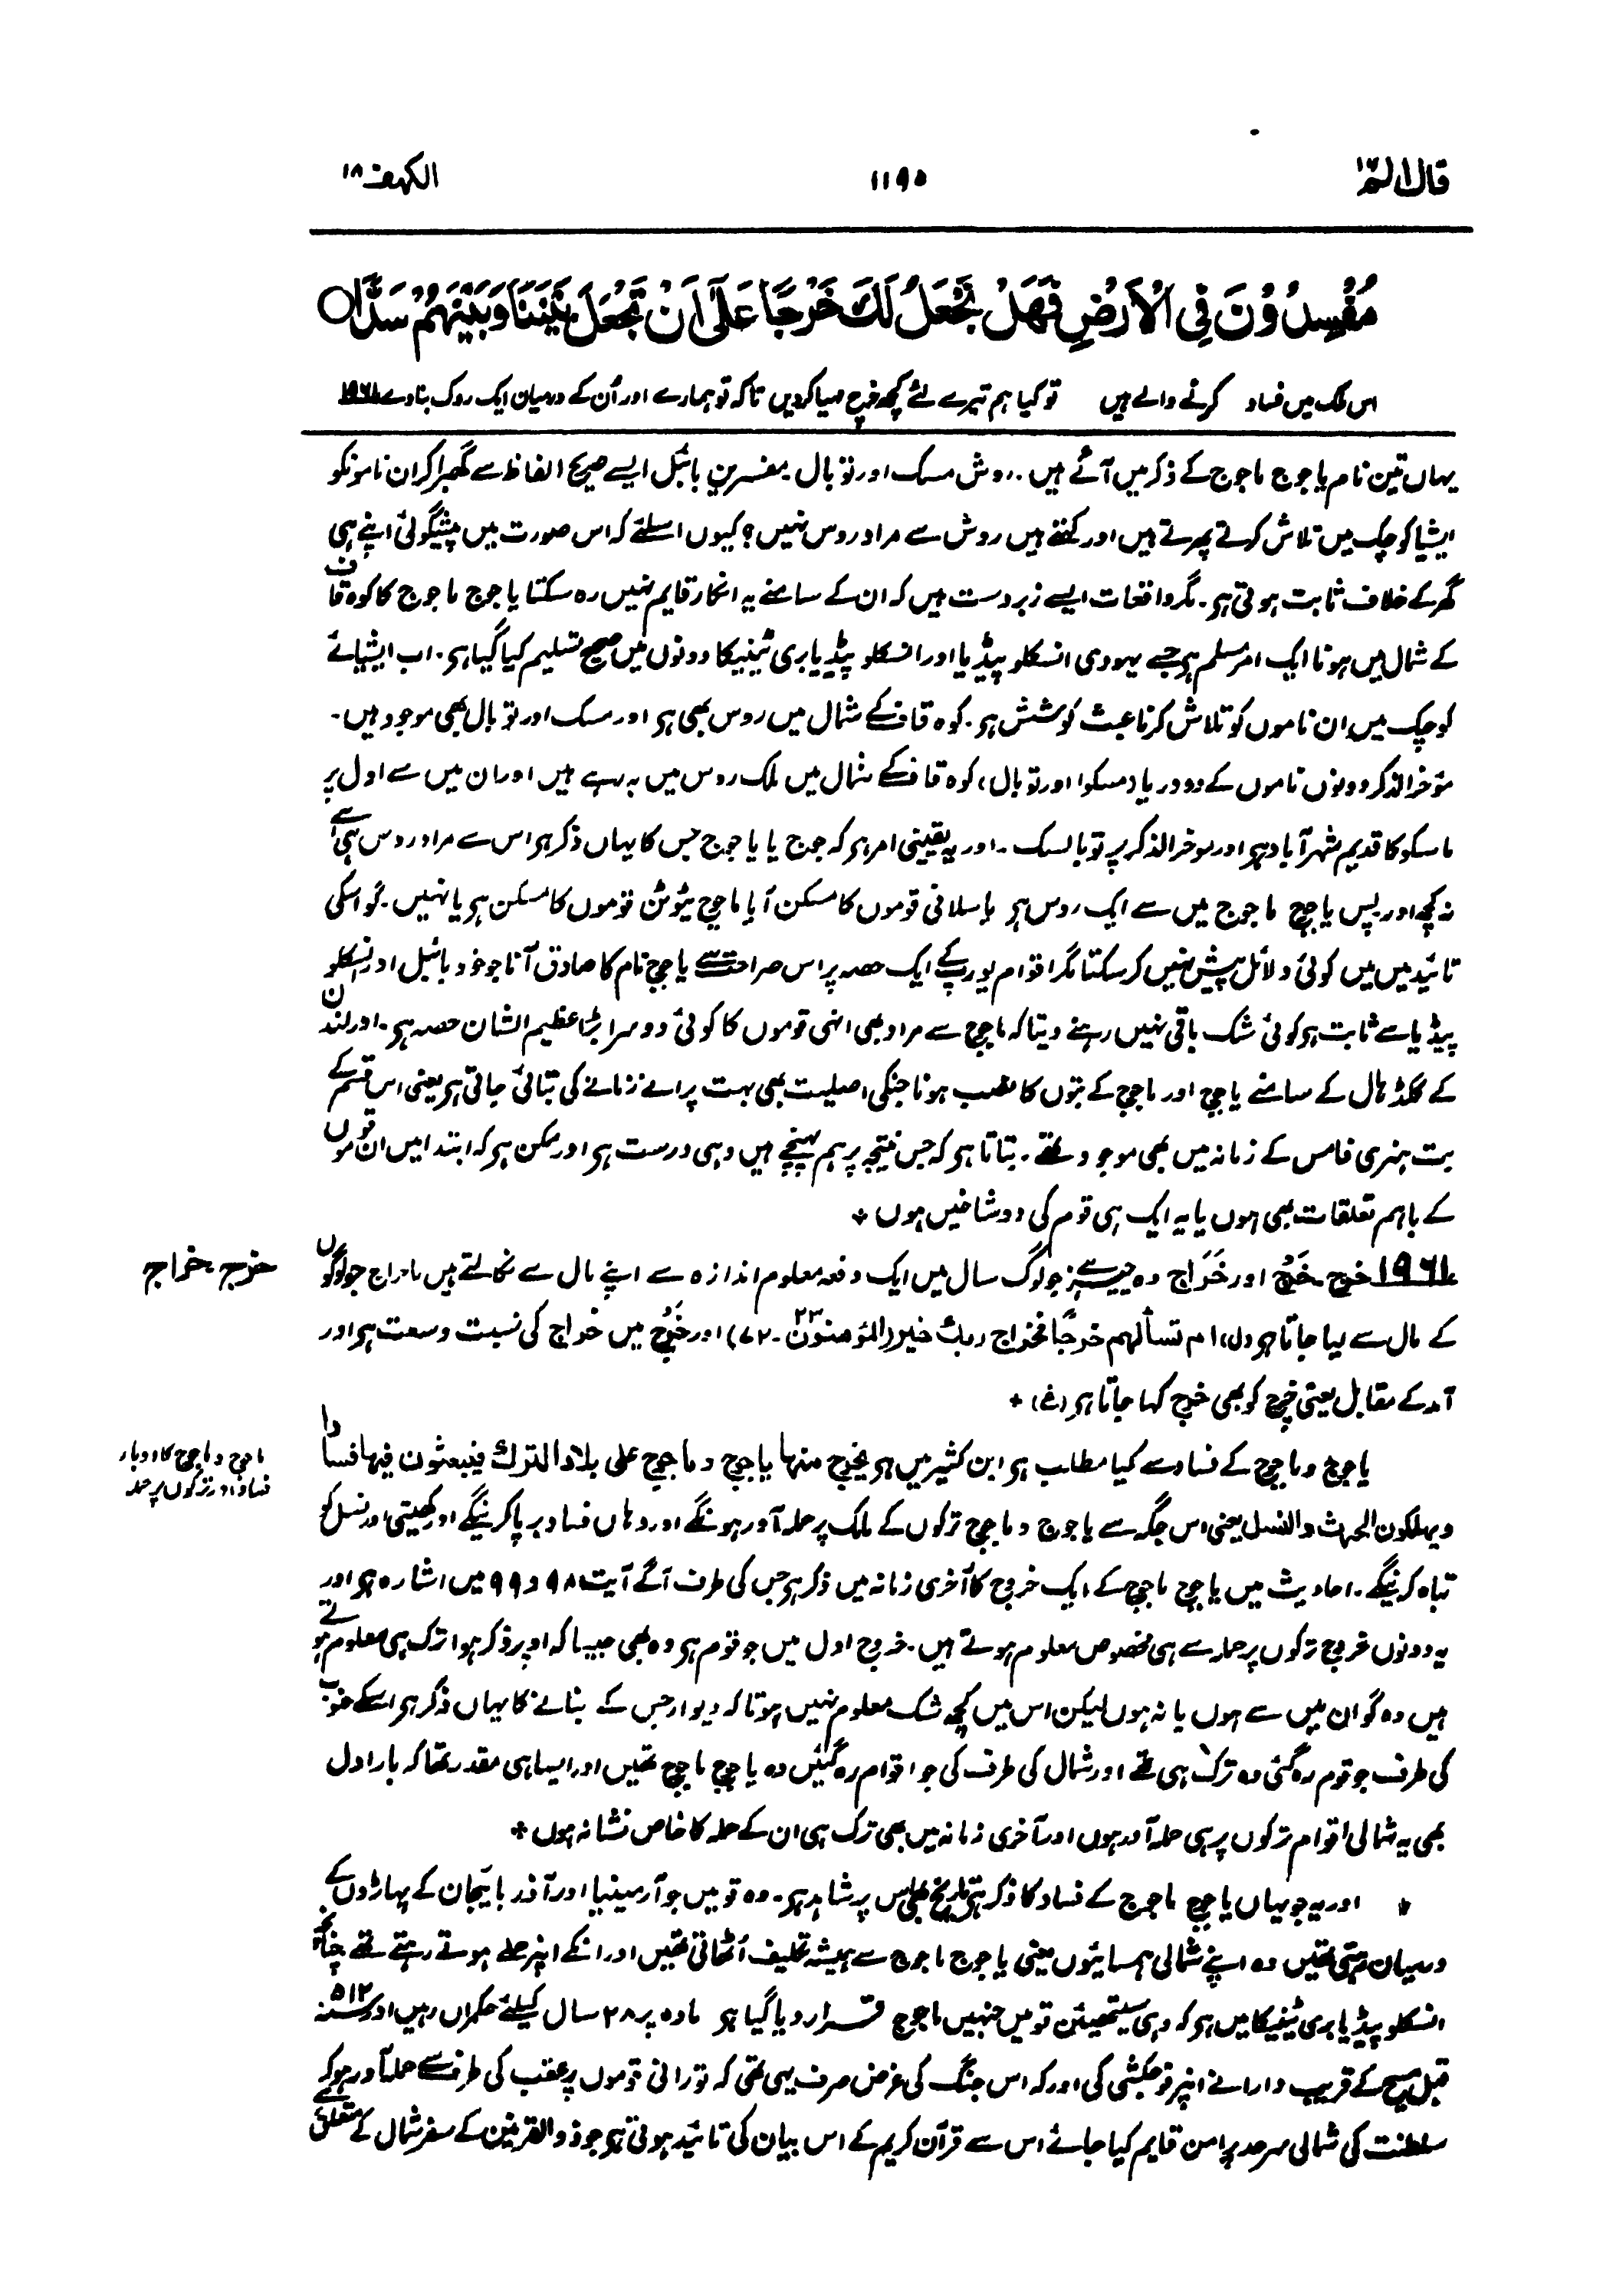 قال الم ۱۶
۱۱۹۵
الکہف ۱۸
مُفْسِدُوْنَ فِي الْاَرْضِ فَهَلْ نَجْعَلُ لَكَ خَرْجًا عَلٰٓى اَنْ تَجْعَلَ بَيْنَنَا وَبَيْنَهُمْ سَدًّا ○
اس ملک میں فساد کرنے والے ہیں تو کیا ہم تیرے لئے کچھ خرچ مہیا کردیں تاکہ تو ہمارے اور اُن کے درمیان ایک روک بنادے ۱۹۶۱
یہاں تین نام یاجوج ماجوج کے ذکر میں آئے ہیں۔ روش مسک اور توبال۔ مفسرین بائبل ایسے صریح الفاظ سے گھبرا کر ان ناموں کو
ایشیا کوچک میں تلاش کرتے پھرتے ہیں اور کہتے ہیں روش سے مراد روس نہیں؟ کیوں اسلئے کہ اس صورت میں پیشگوئی اپنے ہی
گھر کے خلاف ثابت ہوتی ہو۔ مگر واقعات ایسے زبردست ہیں کہ ان کے سامنے یہ انکار قایم نہیں رہ سکتا یاجوج ماجوج کا کوہ قاف
کے شمال میں ہونا ایک امر مسلم ہو جسے یہودی انسکلو پیڈیا اور انسکلو پیڈیا بری ٹینیکا دونوں میں صحیح تسلیم کیا گیا ہو۔ اب ایشیائے
کوچک میں ان ناموں کو تلاش کرنا عبث کوشش ہو۔ کوہ قاف کے شمال میں روس بھی ہو اور مسک اور توبال بھی موجود ہیں۔
مؤخر الذکر دونوں ناموں کے دو دریا (مسکوا اور توبال) کوہ قاف کے شمال میں ملک روس میں بہ رہے ہیں اور ان میں سے اول پر
ماسکو کا قدیم شہر آباد ہو اور موخر الذکر پر توبالسک۔ اور یہ یقینی امر ہو کہ جوج یا یاجوج جس کا یہاں ذکر ہو اس سے مراد روس ہی ہے
نہ کچھ اور پس یاجوج ماجوج میں سے ایک روس ہو یا سلافی قوموں کا مسکن آیا ماجوج ٹیوٹن قوموں کا مسکن ہو یا نہیں۔ گو اسکی
تائید میں میں کوئی دلائل پیش نہیں کر سکتا مگر اقوام یورپ کے ایک حصہ پر اس صراحت سے یاجوج نام کا صادق آنا جو خود بائبل اور انسکلو
پیڈیا سے ثابت ہو کوئی شک باقی نہیں رہنے دیتا کہ ماجوج سے مراد بھی انہی قوموں کا کوئی دوسرا بڑا عظیم الشان حصہ ہو۔ اور لندن
کے گلڈ ہال کے سامنے یاجوج اور ماجوج کے بتوں کا نصب ہونا جنکی اصلیت بھی بہت پرانے زمانے کی بتائی جاتی ہو یعنی اس قسم کے
بت ہنری فامس کے زمانہ میں بھی موجود تھے۔ بتاتا ہو کہ جس نتیجہ پر ہم پہنچے ہیں وہی درست ہو اور ممکن ہو کہ ابتدا میں ان قوموں
کے باہم تعلقات بھی ہوں یا یہ ایک ہی قوم کی دو شاخیں ہوں ٭
خرج۔ خراج
۱۹۶۱ خرج۔ خَرْج اور خَرَاج وہ چیز ہے جو لوگ سال میں ایک دفعہ معلوم اندازہ سے اپنے مال سے نکالتے ہیں یا خراج جو لوگوں
کے مال سے لیا جاتا ہو (ل) ام تسألهم خرجًا فخراج ربك خير (المؤمنون ۲۳۔ ۷۲) اور خَرْج میں خراج کی نسبت وسعت ہو اور
آمد کے مقابل یعنی خرچ کو بھی خرج کہا جاتا ہو (غ) ٭
یاجوج و ماجوج کے فساد سے کیا مطلب ہو ابن کثیر میں ہو يخرج منها ياجوج و ماجوج على بلاد الترك فيبعثون فيها فسادا
ویہلکون الحرث والنسل یعنی اس جگہ سے یاجوج و ماجوج ترکوں کے ملک پر حملہ آور ہونگے اور وہاں فساد برپا کرینگے اور کھیتی اور نسل کو
تباہ کرینگے۔ احادیث میں یاجوج ماجوج کے ایک خروج کا آخری زمانہ میں ذکر ہو جس کی طرف آگے آیت ۹۸ و ۹۹ میں اشارہ ہو اور
یہ دونوں خروج ترکوں پر حملہ سے ہی مخصوص معلوم ہوتے ہیں۔ خروج اول میں جو قوم ہو وہ بھی جیسا کہ اوپر ذکر ہوا ترک ہی معلوم ہوتے
ہیں وہ گو ان میں سے ہوں یا نہ ہوں لیکن اس میں کچھ شک معلوم نہیں ہوتا کہ دیوار جس کے بنانے کا یہاں ذکر ہو اسکے جنوب
کی طرف جو قوم رہ گئی وہ ترک ہی تھے اور شمال کی طرف کی جو اقوام رہ گئیں وہ یاجوج ماجوج تھیں اور ایسا ہی مقدر تھا کہ بار اول
بھی یہ شمالی اقوام ترکوں پر ہی حملہ آور ہوں اور آخری زمانہ میں بھی ترک ہی ان کے حملہ کا خاص نشانہ ہوں ٭
٭ اور یہ جو یہاں یاجوج ماجوج کے فساد کا ذکر ہے تو تاریخ بھی اس پر شاہد ہو۔ وہ قومیں جو آرمینیا اور آذر بائیجان کے پہاڑوں کے
درمیان رہتی تھیں وہ اپنے شمالی ہمسائیوں یعنی یاجوج ماجوج سے ہمیشہ تکلیف اُٹھاتی تھیں اور انکے اپنر حملے ہوتے رہتے تھے چنانچہ
انسکلو پیڈیا بری ٹینیکا میں ہو کہ وہی سیتھیئن قومیں جنہیں ماجوج قرار دیا گیا ہو مادہ پر ۲۸ سال کیلئے حکمراں رہیں اور سنہ ۵۱۲
قبل مسیح کے قریب دارا نے انپر فوجکشی کی اور کہ اس جنگ کی غرض صرف یہی تھی کہ تورانی قوموں پر عقب کی طرف سے حملہ آور ہو کر
سلطنت کی شمالی سرحد پر امن قایم کیا جائے اس سے قرآن کریم کے اس بیان کی تائید ہوتی ہو جو ذوالقرنین کے سفر شمال کے متعلق ہے